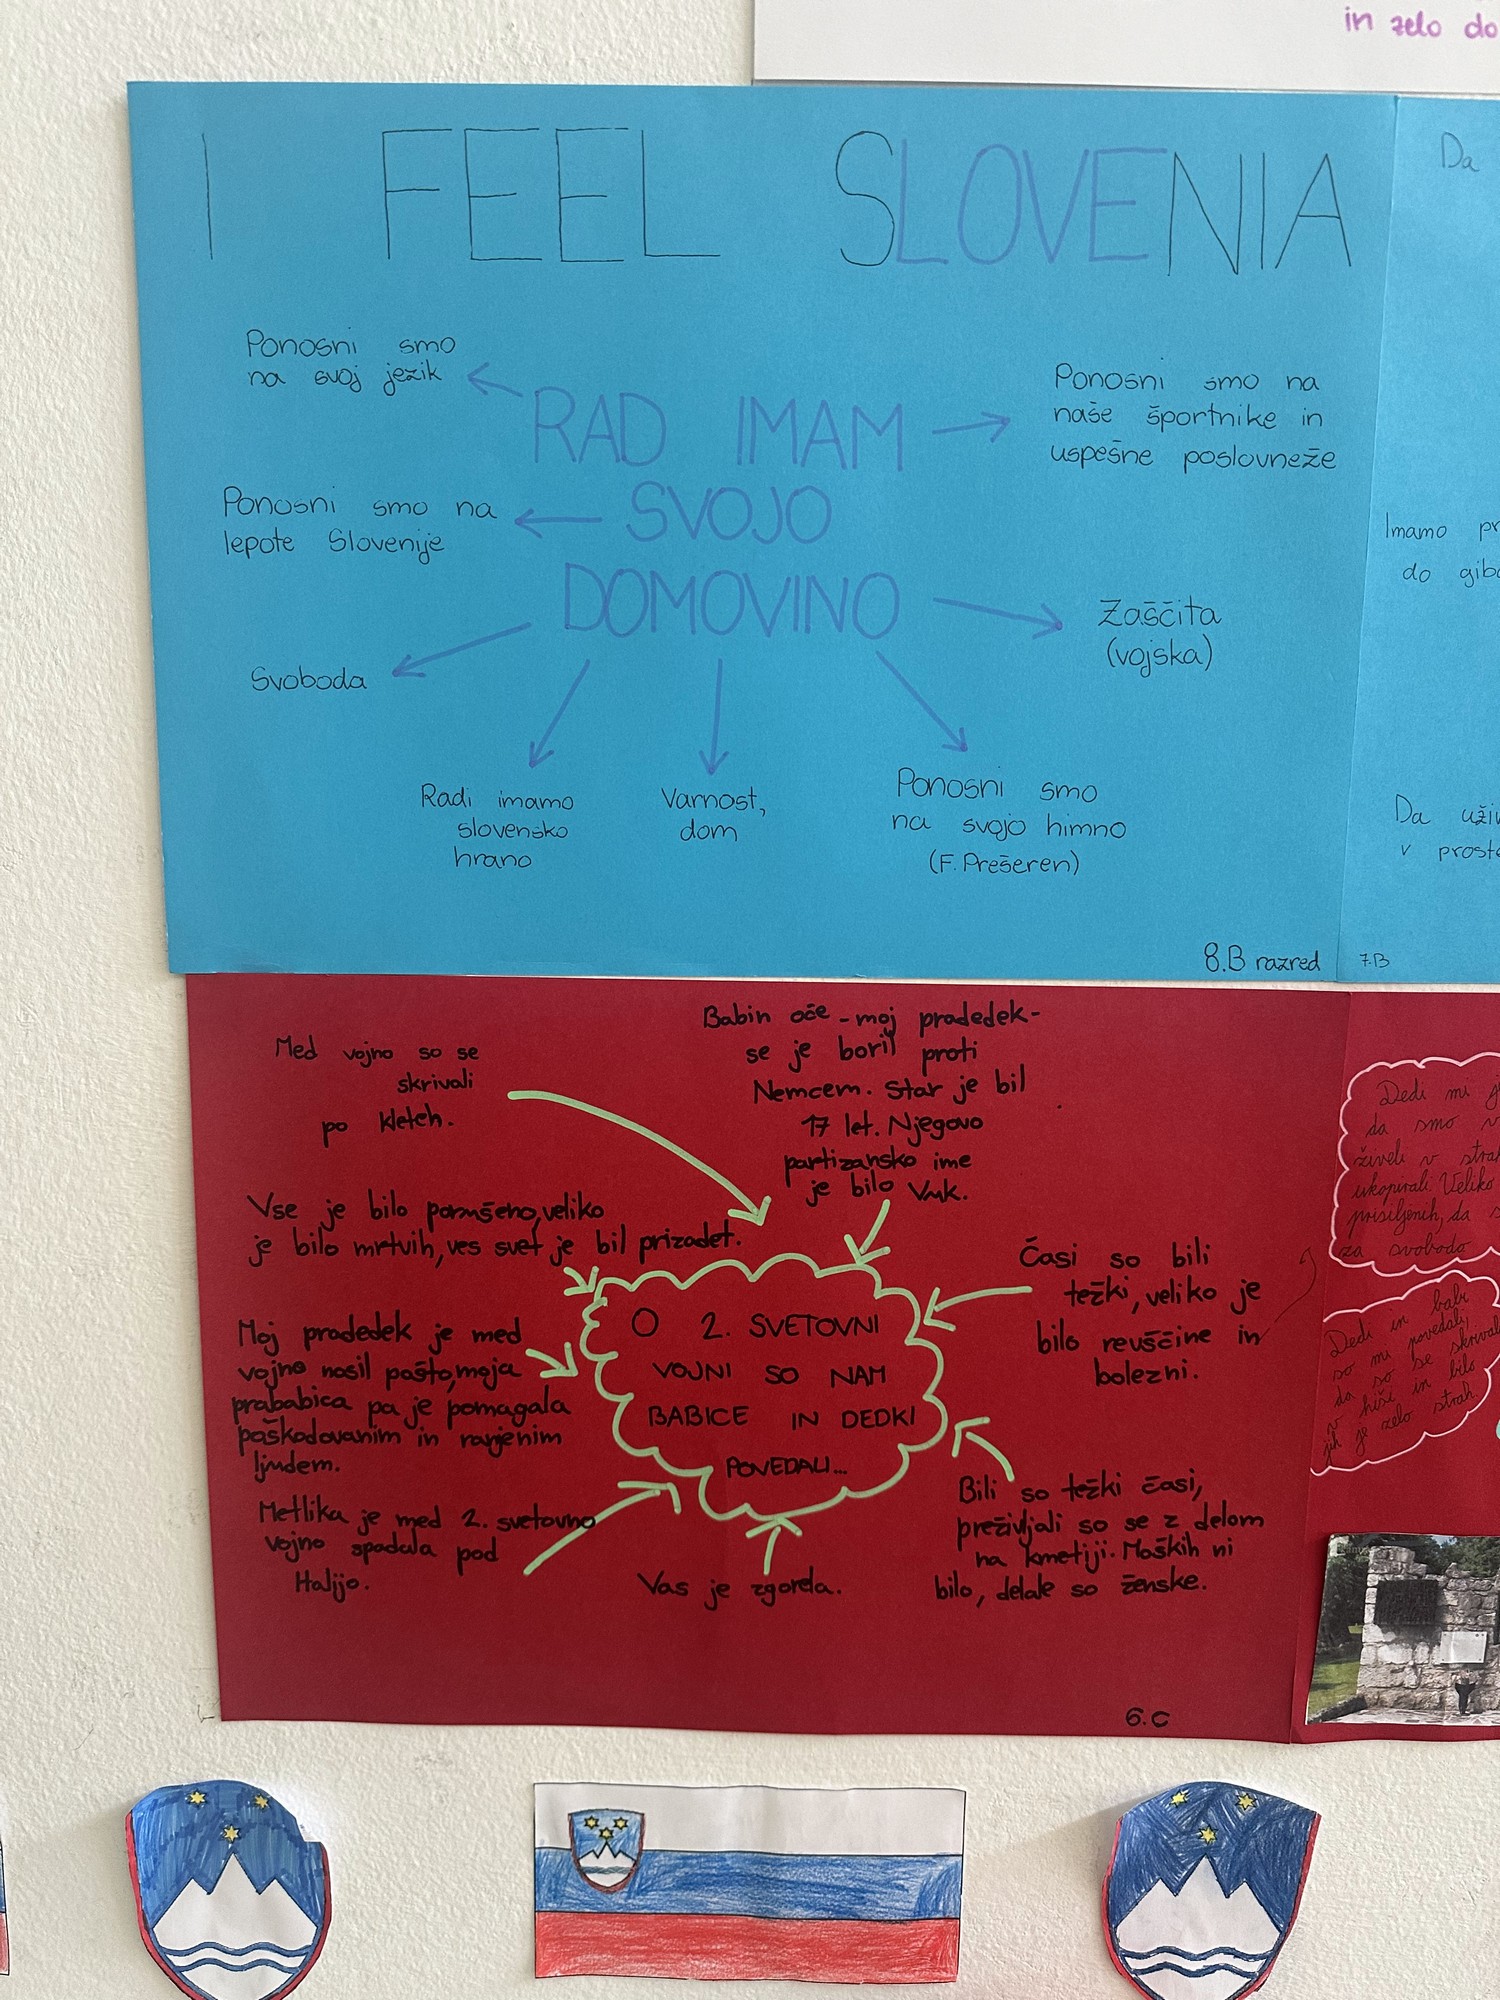 in zelo do
I FEEL SLOVENIA
Ponosni smo
na svoj jezik
Ponosni smo na
naše športnike in
uspešne poslovneže
Ponosni smo na
lepote Slovenije
RAD IMAM
SVOJO
DOMOVINO
Zaščita
(vojska)
Svoboda
Radi imamo
slovensko
hrano
Varnost,
dom
Ponosni smo
na svojo himno
(F. Prešeren)
8.B razred
Da
Imamo
do
Da
v
7.B
Med vojno so se
skrivali
po kleteh.
Babin oče - moj pradedek-
se je boril proti
Nemcem. Star je bil
17 let. Njegovo
partizansko ime
je bilo Vuk.
Vse je bilo porušeno, veliko
je bilo mrtvih, ves svet je bil prizadet.
Moj pradedek je med
vojno nosil pošto, moja
prababica pa je pomagala
poškodovanim in ranjenim
ljudem.
Metlika je med 2. svetovno
vojno spadala pod
Italijo.
O 2. SVETOVNI
VOJNI SO NAM
BABICE IN DEDKI
POVEDALI...
Časi so bili
težki, veliko je
bilo revščine in
bolezni.
Bili so težki časi,
preživljali so se z delom
na kmetiji. Moških ni
bilo, delale so ženske.
Vas je zgorela.
6.C
Dedi mi
da smo v
živeli v
ukopirali. Veliko
prisiljenih, da
za svobodo
Dedi in babi
so mi povedali,
da so se
v hiši in bilo
jih je zelo strah.